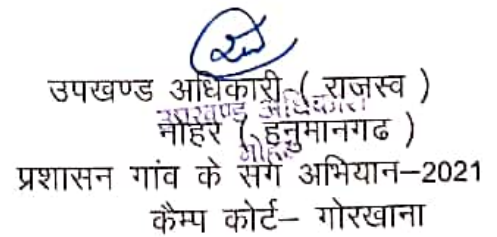 उपखण्ड अधिकारी ( राजस्व )
उपखण्ड अधिकारी
नोहर ( हनुमानगढ )
नोहर
प्रशासन गांव के संग अभियान–2021
कैम्प कोर्ट– गोरखाना